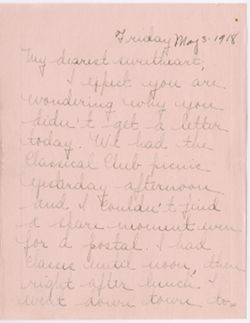 Friday May 3-1918
My dearest sweetheart,
I expect you are
wondering why you
didn't get a letter
today. We had the
Classical Club picnic
yesterday afternoon
and I couldn't find
a spare moment even
for a postal. I had
classes until noon, then
right after lunch I
went down town to